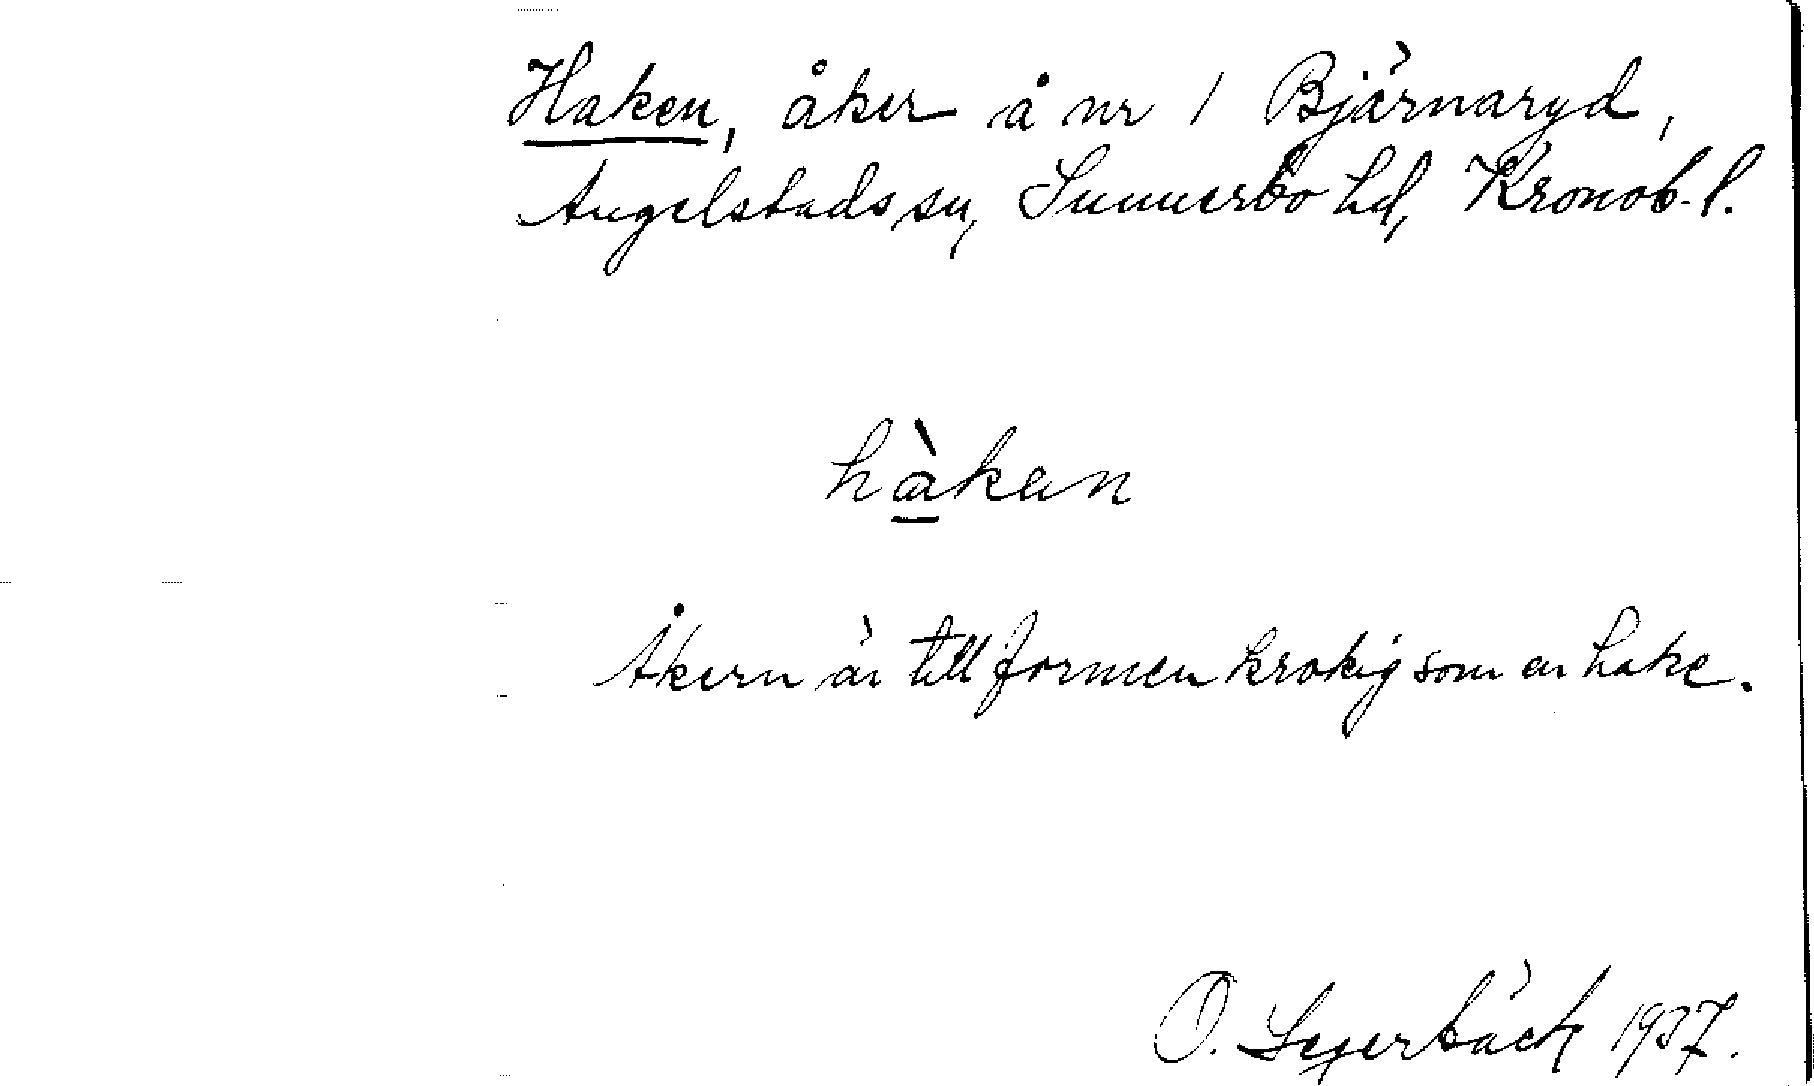 Haken, åker å nr 1 Bjärnaryd,
Angelstads sn, Sunnerbo hd, Kronob. l.
hàkan
Åkern är till formen krokig som en hake.
O. Segerbäck 1937.